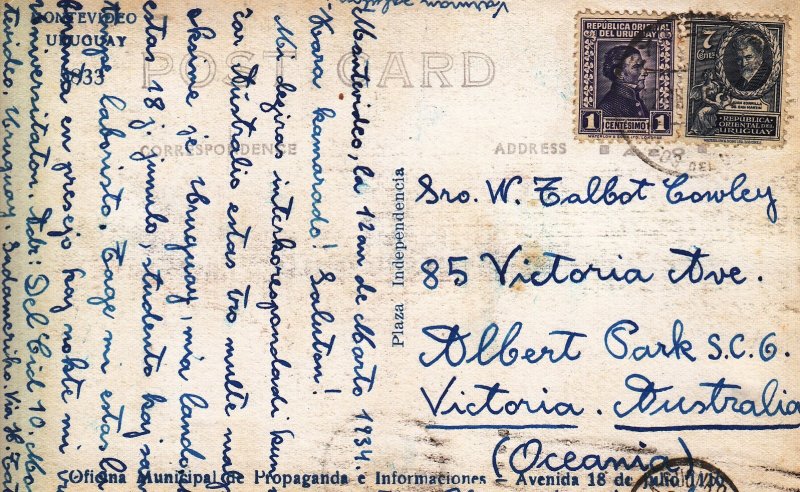 MONTEVIDEO
URUGUAY
1933
POST CARD
CORRESPONDENCE
ADDRESS
REPÚBLICA ORIENTAL
DEL URUGUAY
1 1
CENTÉSIMO
7
Cts.
REPÚBLICA
ORIENTAL DEL
URUGUAY
Plaza Independencia
Montevideo, la 12an de Marto 1934.
Kara kamarado! Saluton!
Mi deziras interkorespondadi kun
ĉar Aŭstralio estas tro multe mal
skime je Uruguay, mia lando
estas 18 j. junulo, studento kaj sam
tempe laboristo. Tage mi estas la
en presejo kaj nokte mi
universitaton. Adr: Del Cid 10 Mo
tevideo, Uruguay. Sudamerika. Via
Sro. W. Talbot Cowley
85 Victoria Ave.
Albert Park S.C.6.
Victoria. Australia
(Oceania)
Oficina Municipal de Propaganda e Informaciones – Avenida 18 de Julio